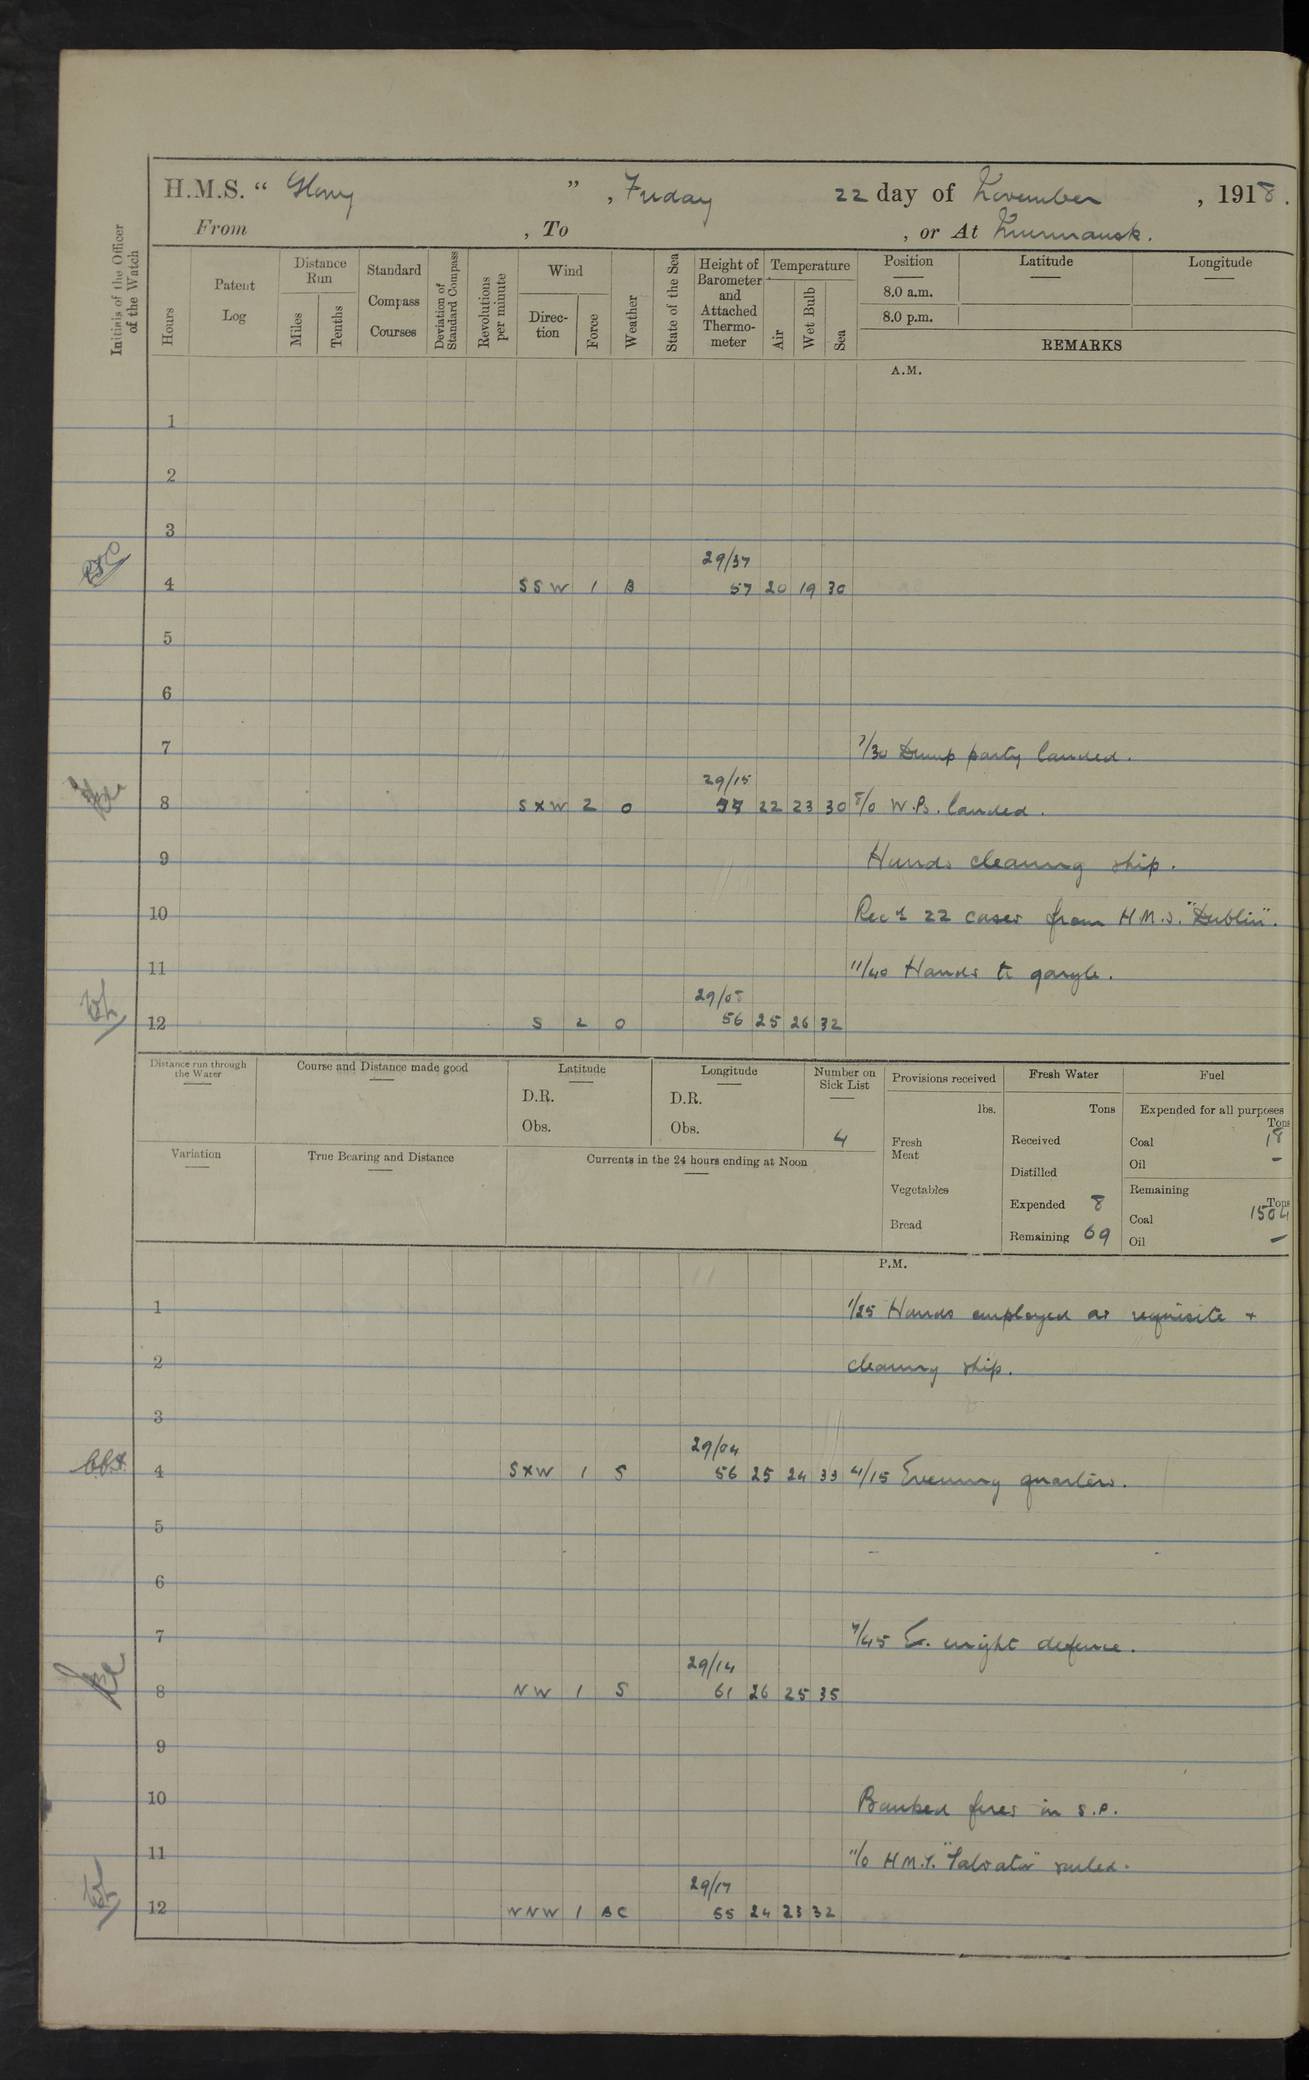 H.M.S. “ Glory ”, Friday 22 day of November, 1918.
From , To , or At Murmansk.
Initials of the Officer of the Watch
Hours
Patent Log
Distance Run
Miles
Tenths
Standard Compass Courses
Deviation of Standard Compass
Revolutions per minute
Wind
Direction
Force
Weather
State of the Sea
Height of Barometer and Attached Thermometer
Temperature
Air
Wet Bulb
Sea
Position
8.0 a.m.
8.0 p.m.
Latitude
Longitude
REMARKS
A.M.
1
2
3
29/37
4 SSW 1 B 57 20 19 30
5
6
7 7/30 Dump party landed.
29/15
8 SXW 2 O 22 23 30 8/0 W.P. landed.
9 Hands cleaning ship.
10 Recd 22 cases from H.M.S. "Dublin".
11 11/40 Hands to gargle.
29/05
12 S 2 O 56 25 26 32
Distance run through the Water
Course and Distance made good
Latitude
D.R.
Obs.
Longitude
D.R.
Obs.
Number on Sick List
4
Provisions received
lbs.
Fresh Meat
Vegetables
Bread
Fresh Water
Tons
Received
Distilled
Expended 8
Remaining 69
Fuel
Expended for all purposes
Tons
Coal 18
Oil -
Remaining
Tons
Coal 1504
Oil -
Variation
True Bearing and Distance
Currents in the 24 hours ending at Noon
P.M.
1 1/25 Hands employed as requisite +
2 cleaning ship.
3
29/04
4 SXW 1 S 56 25 24 33 4/15 Evening quarters.
5
6
7 7/45 Ex. night defence.
29/14
8 NW 1 S 61 26 25 35
9
10 Banked fires in S.P.
11 11/0 H.M.Y. "Salvator" sailed.
29/17
12 WNW 1 BC 55 24 23 32